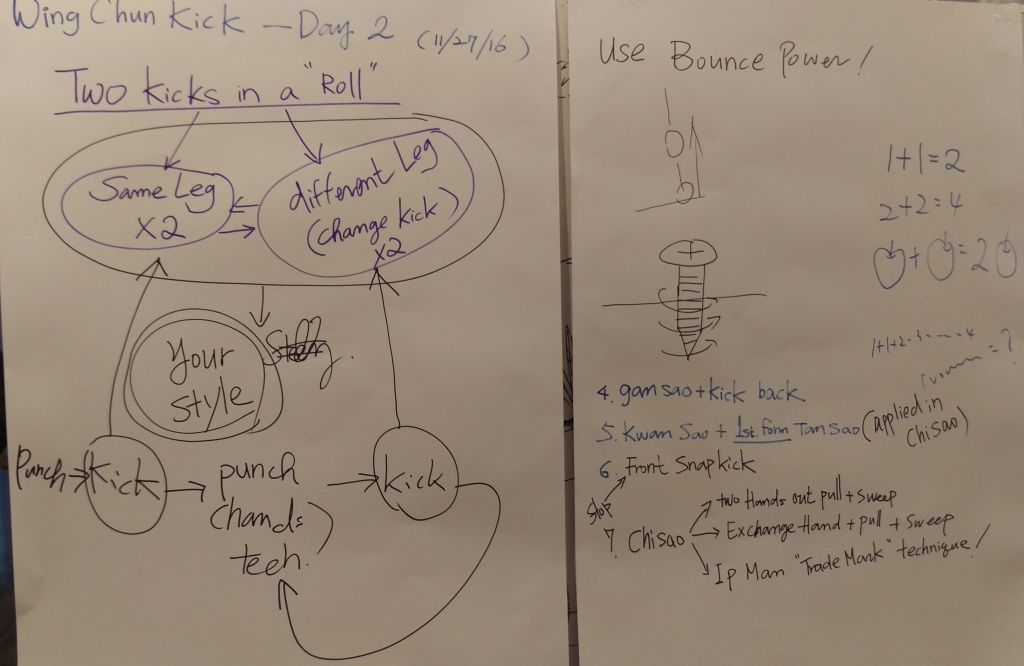 Wing Chun Kick — Day 2 (11/27/16)
Two kicks in a "Roll"
Same Leg
X2
different Leg
(change kick)
X2
Your
style
Punch → kick → punch → kick
(hands
tech.)
Use Bounce Power!
1+1=2
2+2=4
+ = 2
1+1+2
= ?
4. gamsao + kick back
5. Kwan Sao + 1st. form Tan Sao (applied in
ChiSao)
6. Front Snap kick
Stop
7. Chisao → two Hands out pull + sweep
→ Exchange Hand + pull + sweep
Ip Man "Trade Mark" technique!